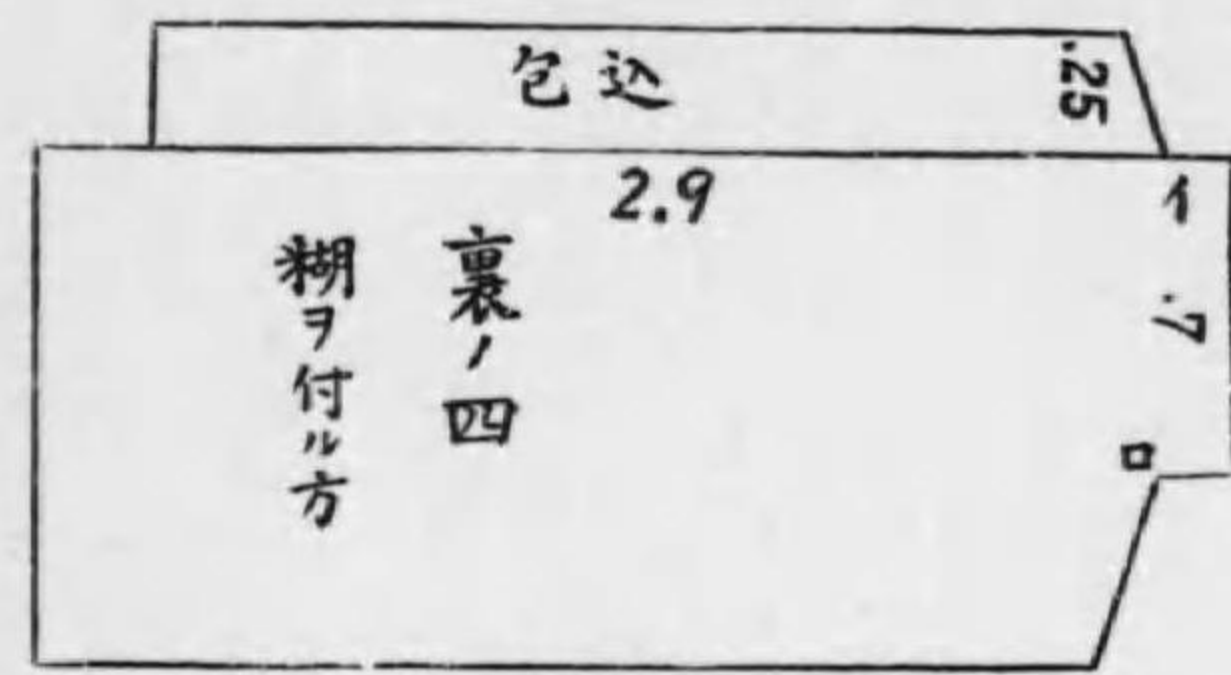 包込
.25
2.9
イ
.7
ロ
裏ノ四
糊ヲ付ル方